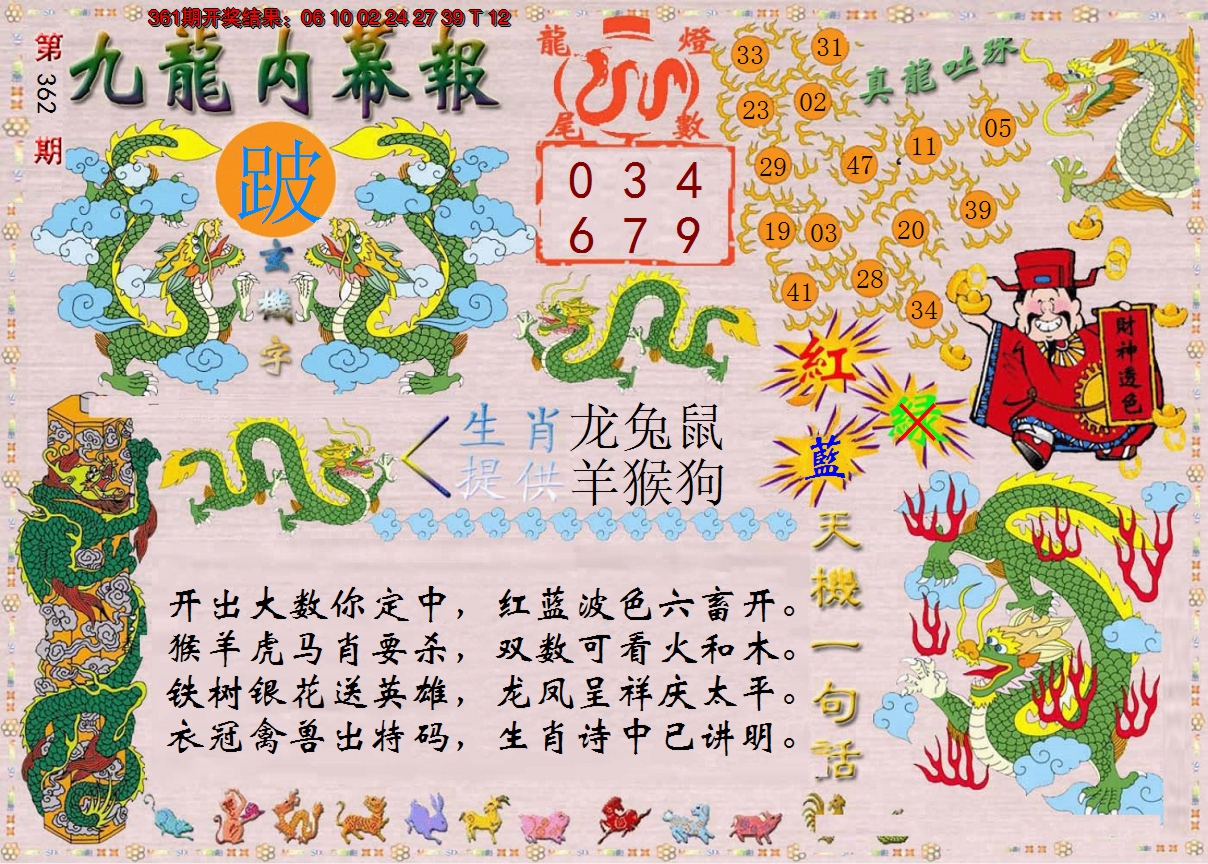 361期开奖结果：06 10 02 24 27 39 T 12
第362期
九龍内幕報
跛
玄機字
龍燈
尾數
0 3 4
6 7 9
真龍吐珠
33 31
23 02
29 47 11 05
19 03 20 39
41 28 34
紅
绿
藍
財神透色
生肖 龙兔鼠
提供 羊猴狗
天機一句話
开出大数你定中，红蓝波色六畜开。
猴羊虎马肖要杀，双数可看火和木。
铁树银花送英雄，龙凤呈祥庆太平。
衣冠禽兽出特码，生肖诗中已讲明。